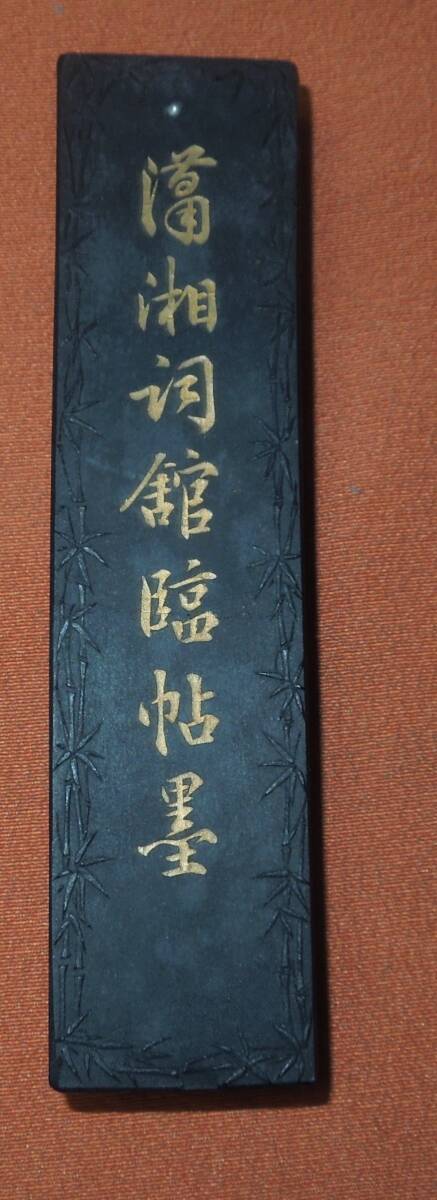 瀟湘词舘臨帖墨